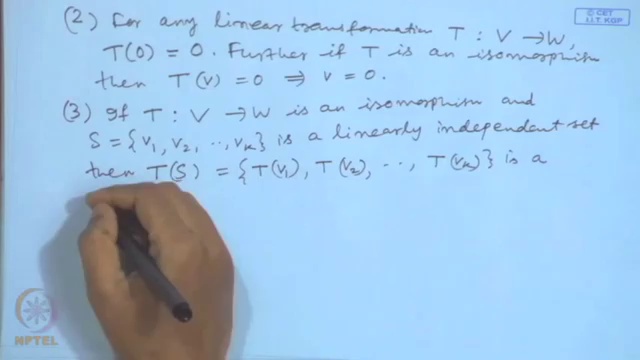 © CET
I.I.T. KGP
(2) For any linear transformation T : V → W,
T(0) = 0. Further if T is an isomorphism
then T(v) = 0 ⟹ v = 0.
(3) If T : V → W is an isomorphism and
S = {v₁, v₂, .., vₖ} is a linearly independent set
then T(S) = {T(v₁), T(v₂), .., T(vₖ)} is a
NPTEL